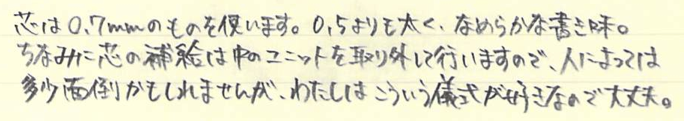 芯は0.7mmのものを使います。0.5よりも太く、なめらかな書き味。
ちなみに芯の補給は中のユニットを取り外して行いますので、人によっては
多少面倒かもしれませんが、わたしはこういう儀式が好きなので大丈夫。